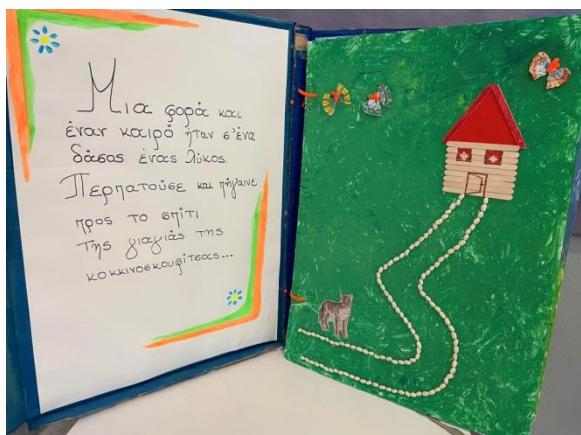 Μια φορά και
έναν καιρό ήταν σ'ένα
δάσος ένας λύκος.
Περπατούσε και πήγαινε
προς το σπίτι
της γιαγιάς της
κοκκινοσκουφίτσας...